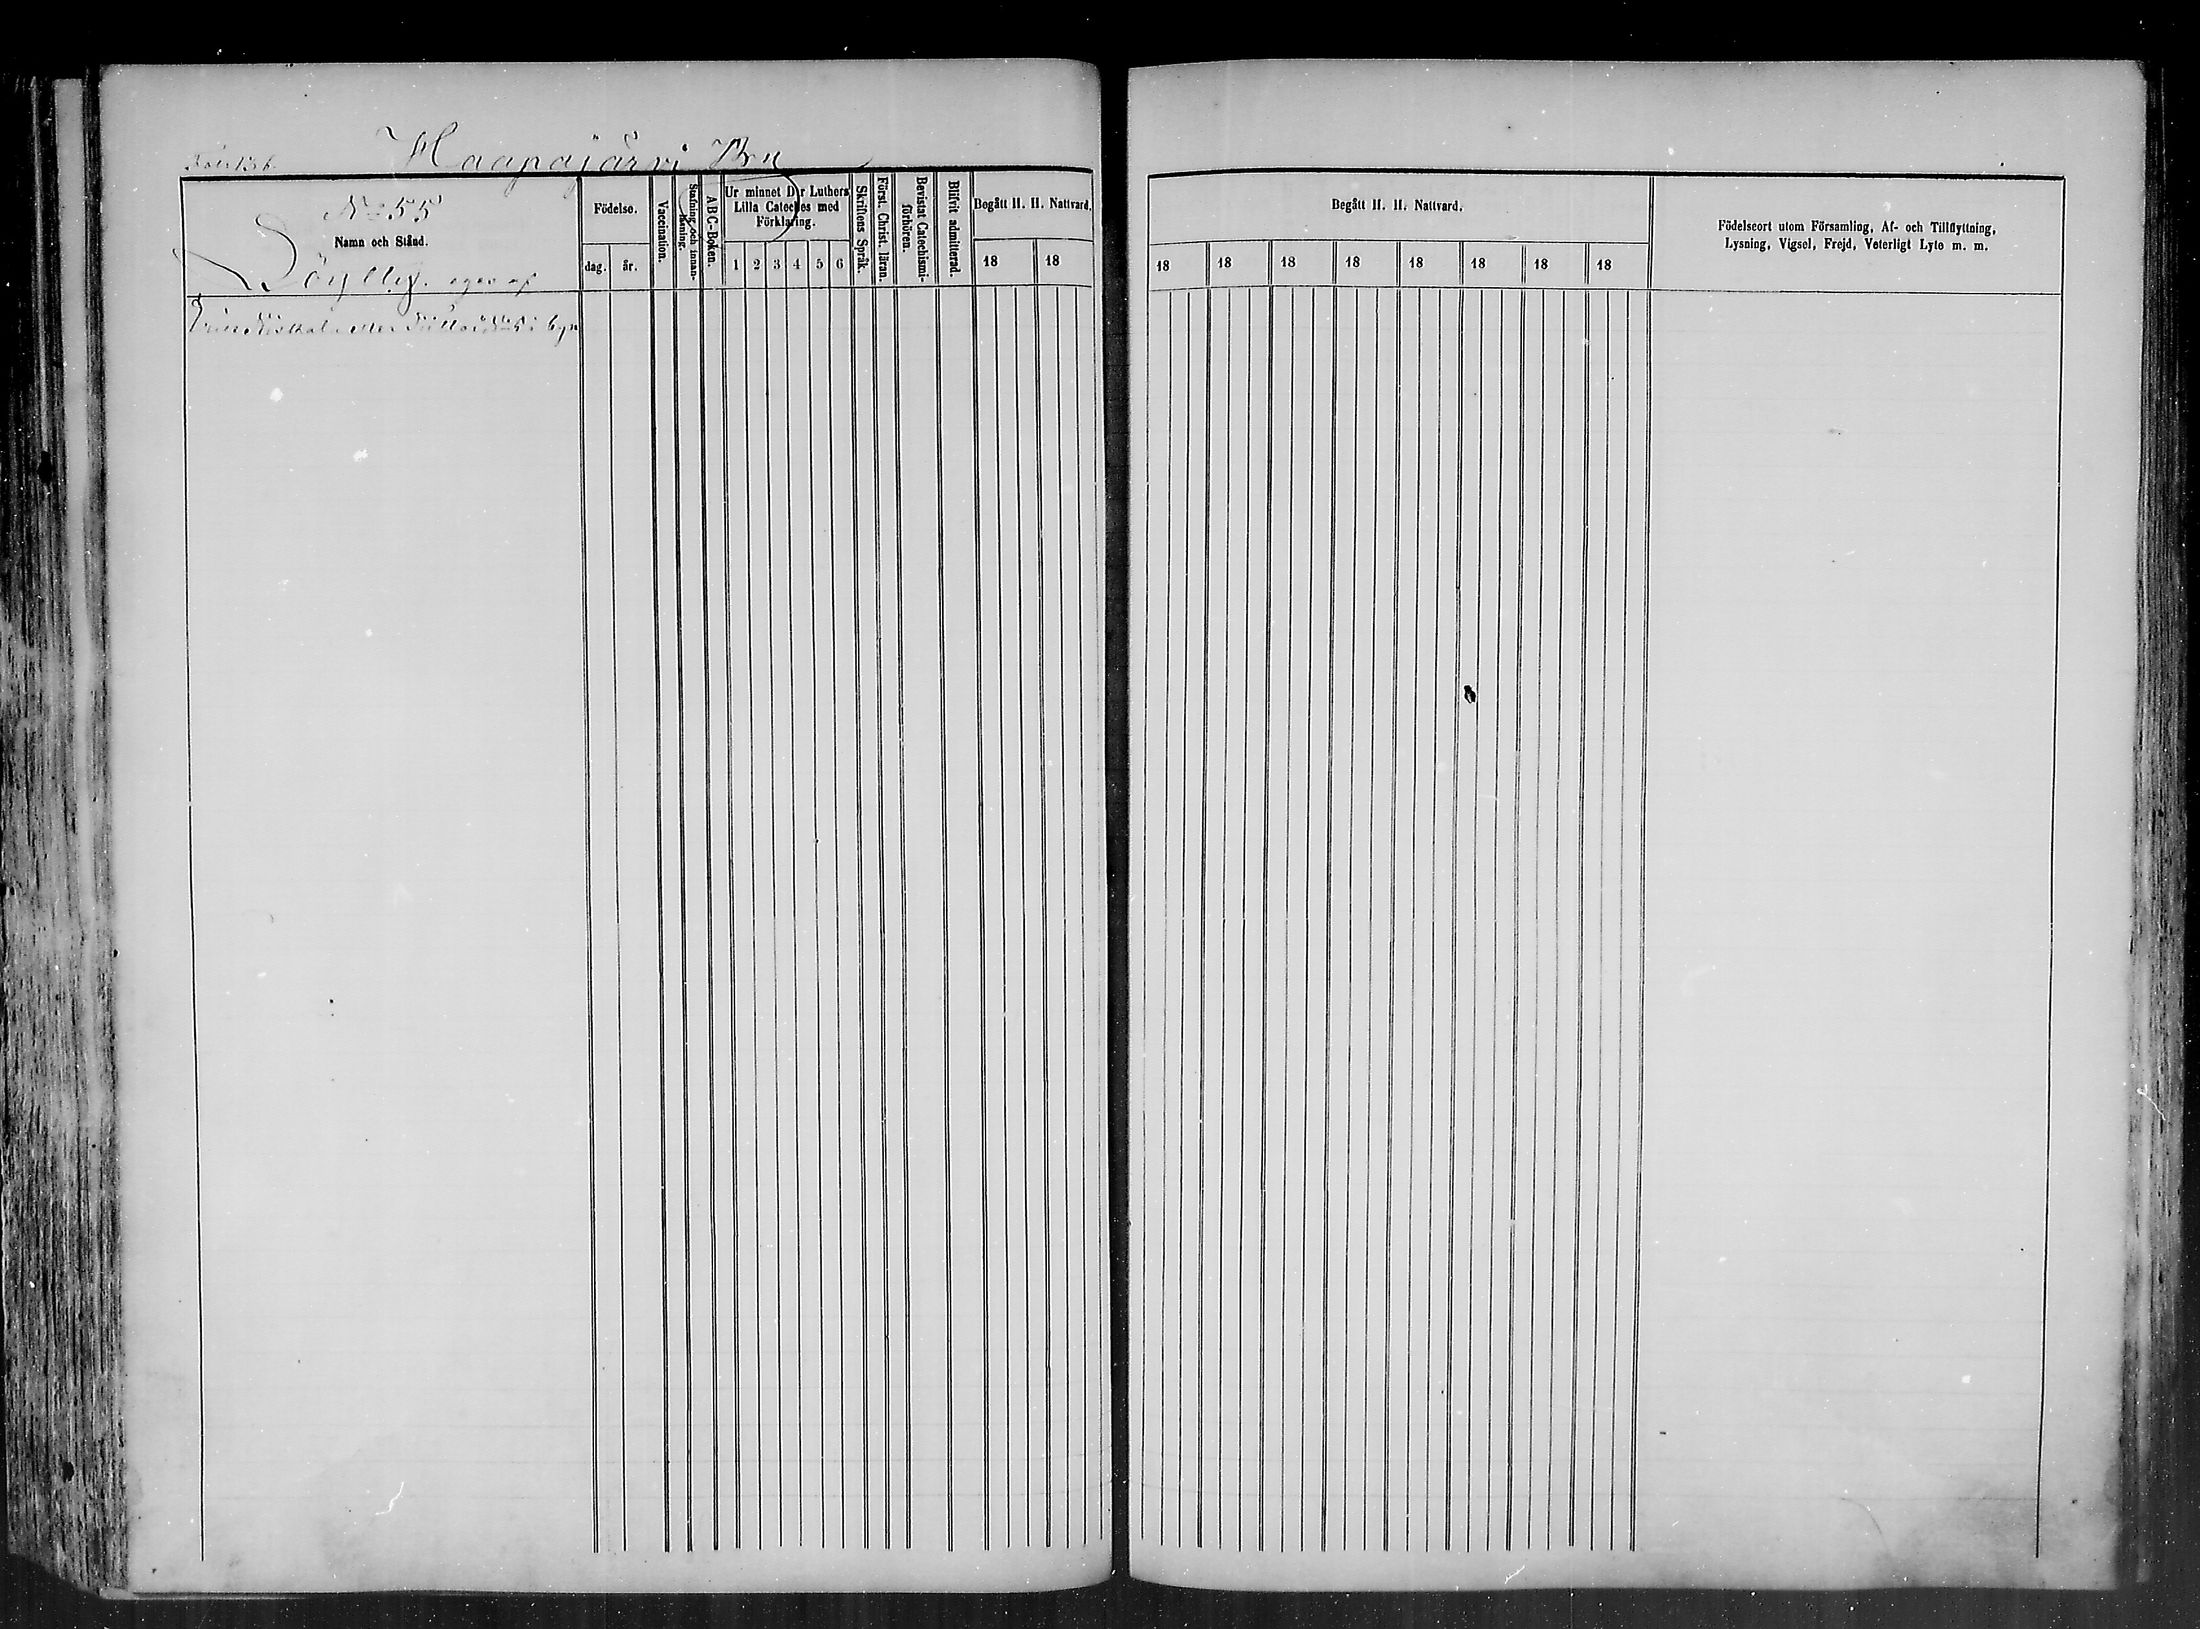 Haapajärvi
N:o 55
Namn och Stånd.
äges af
i byn
Födelse.
dag.
år.
Vaccination.
Stafning och innan-
läsning.
ABC-Boken.
Ur minnet D:r Luthers
Lilla Cateches med
Förklaring.
1 2 3 4 5 6
Skriftens Språk.
Först. Christ. läran.
Bevistat Catechismi-
förhören.
Blifvit admitterad.
Begått H. H. Nattvard.
18 18
Begått H. H. Nattvard.
18 18 18 18 18 18 18 18
Födelseort utom Församling, Af- och Tillflyttning,
Lysning, Vigsel, Frejd, Veterligt Lyte m. m.